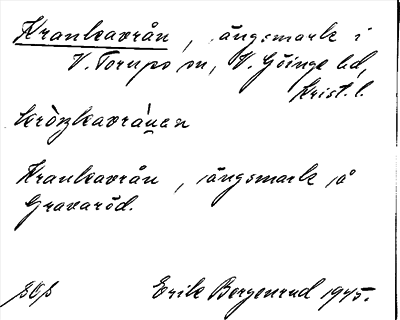 Krankavrån, ängsmark i
V. Torups sn, V. Göinge hd,
Krist. l.
Krankavrån, ängsmark på
Gravaröd.
Erik Bergenrud 1945.